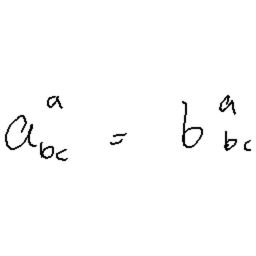 a_{bc}^{a} = b_{bc}^{a}